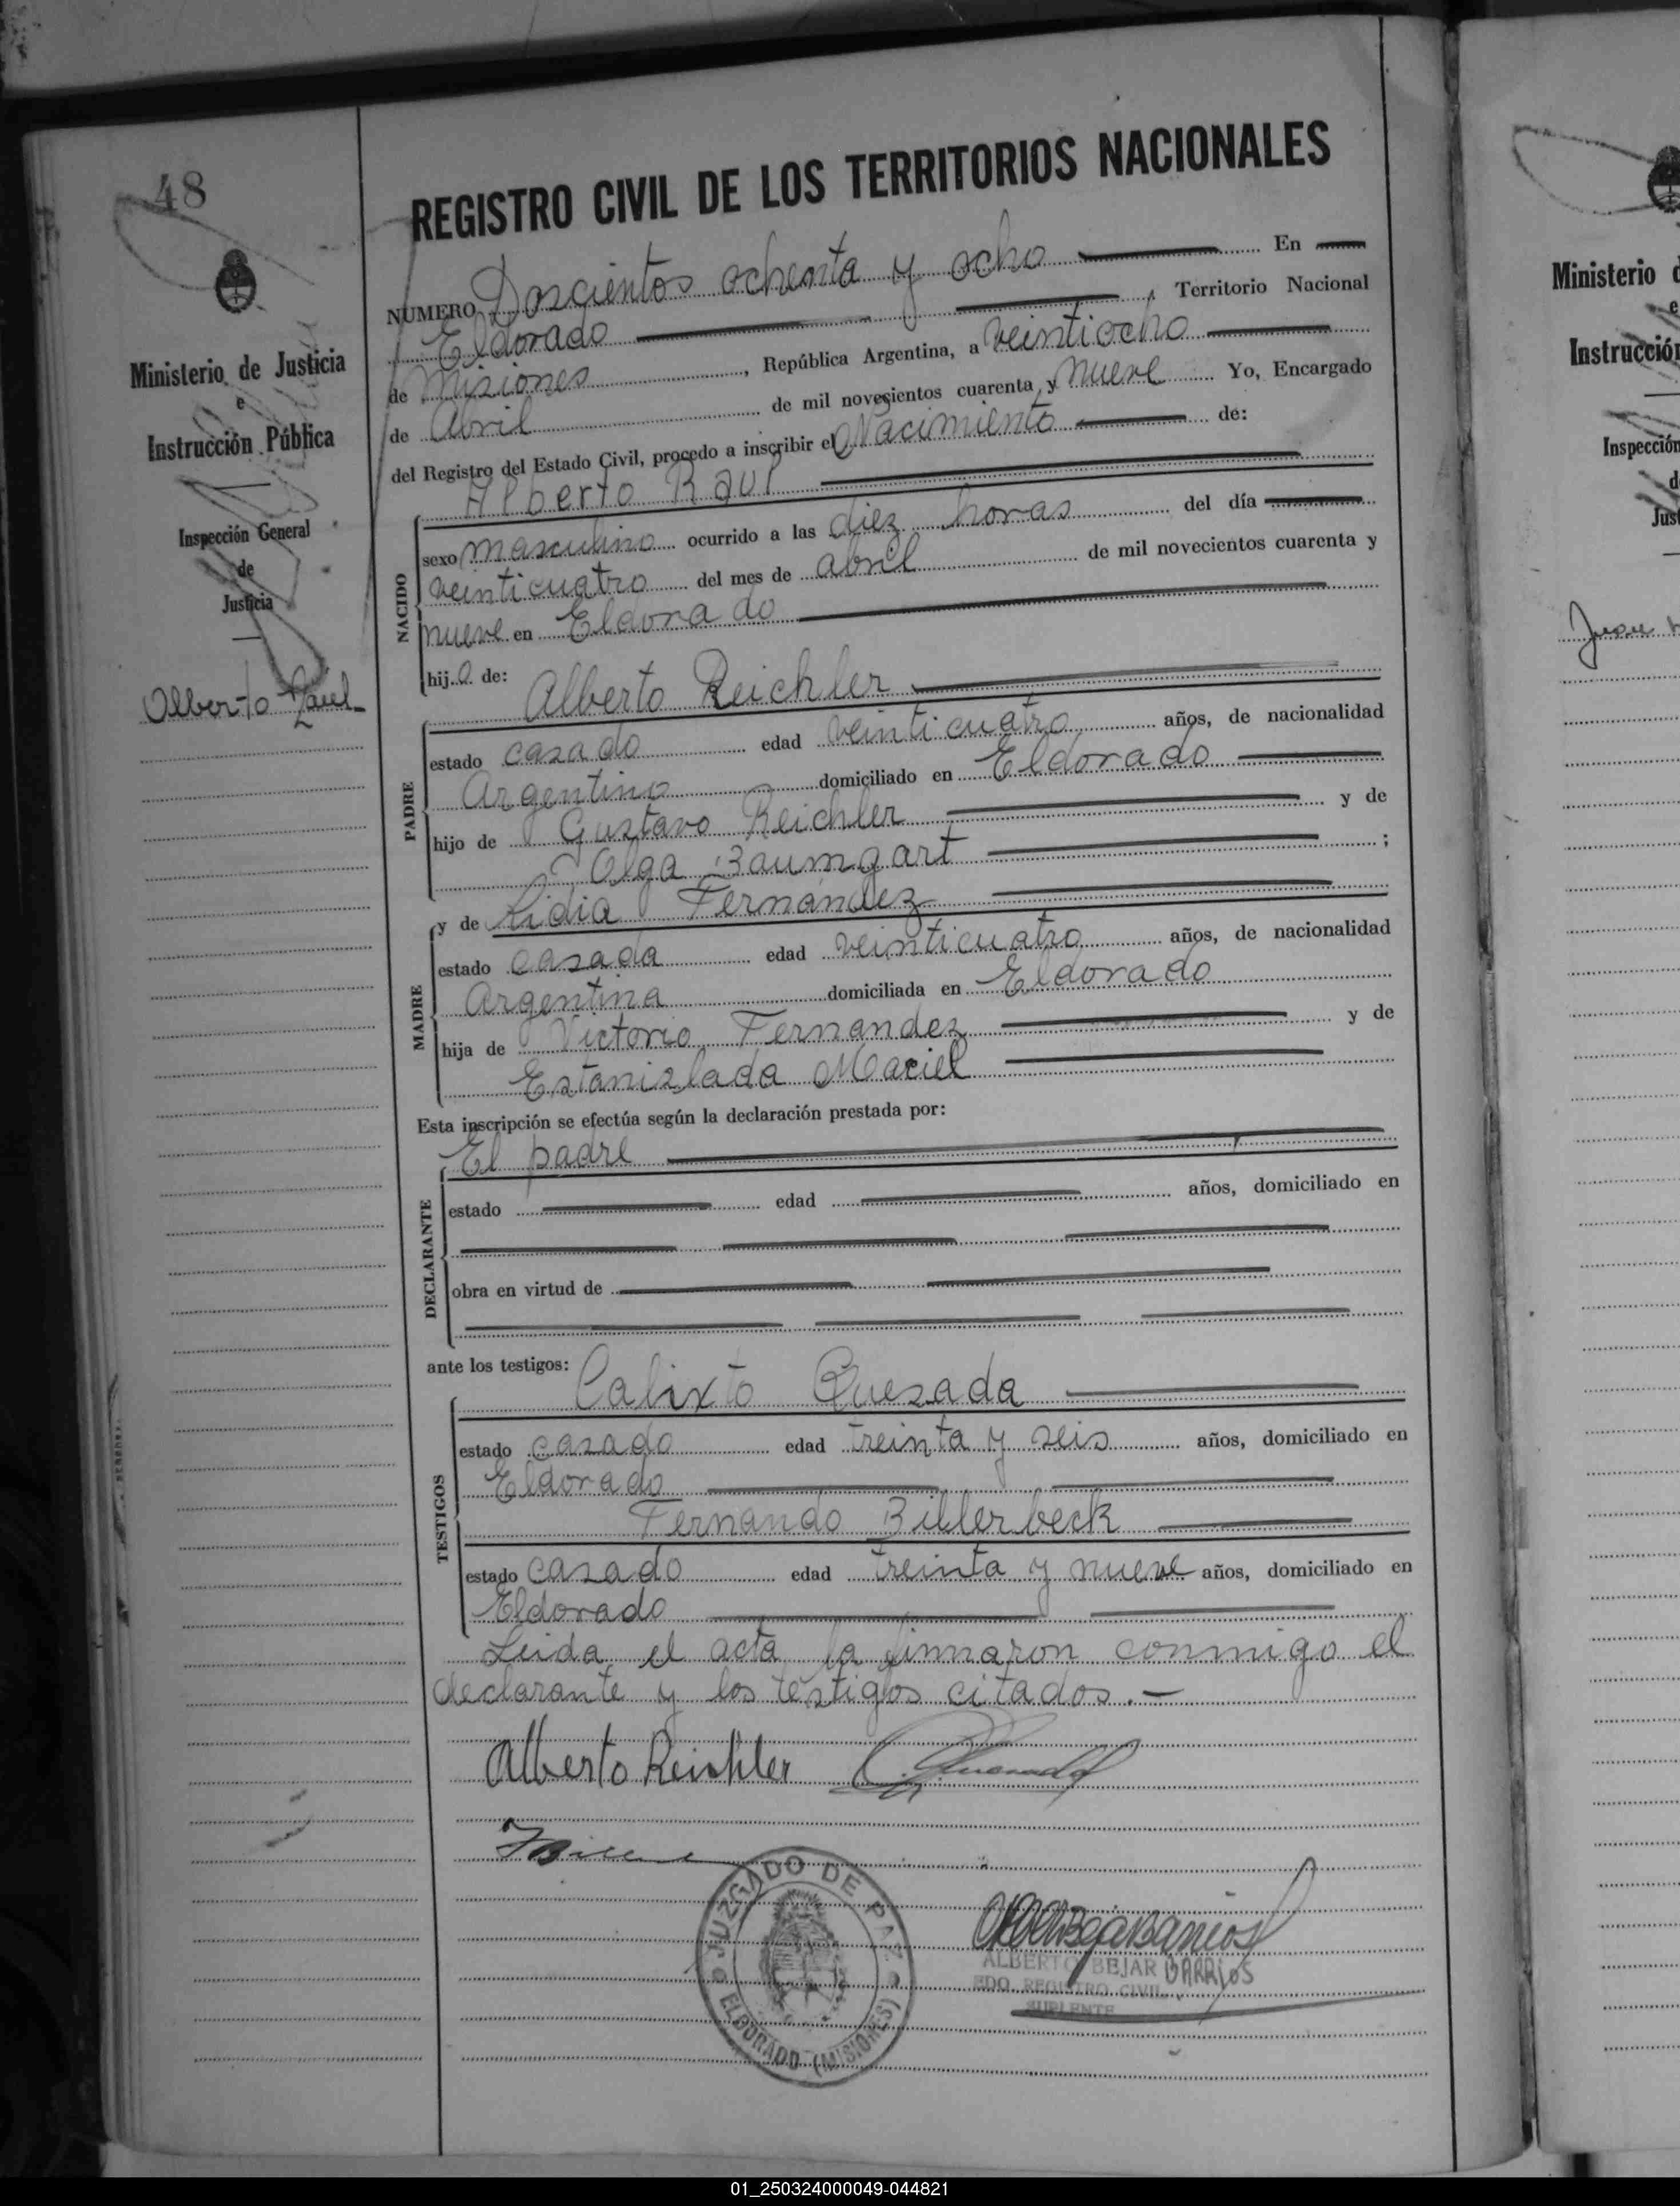 48
Ministerio de Justicia
e
Instrucción Pública
Inspección General
de
Justicia
Alberto Raul
REGISTRO CIVIL DE LOS TERRITORIOS NACIONALES
NUMERO Doscientos ochenta y ocho En
Eldorado , Territorio Nacional
de Misiones , República Argentina, a veintiocho
de Abril de mil novecientos cuarenta y nueve Yo, Encargado
del Registro del Estado Civil, procedo a inscribir el Nacimiento de:
Alberto Raul
NACIDO
sexo masculino ocurrido a las diez horas del día
veinticuatro del mes de abril de mil novecientos cuarenta y
nueve en Eldorado
hij o de:
Alberto Reichler
PADRE
estado casado edad veinticuatro años, de nacionalidad
Argentino domiciliado en Eldorado
hijo de Gustavo Reichler y de
Olga Baumgart ;
y de Lidia Fernández
MADRE
estado casada edad veinticuatro años, de nacionalidad
Argentina domiciliada en Eldorado
hija de Victorio Fernandez y de
Estanislada Maciel
Esta inscripción se efectúa según la declaración prestada por:
El padre
DECLARANTE
estado edad años, domiciliado en
obra en virtud de
ante los testigos:
Calixto Quesada
TESTIGOS
estado casado edad treinta y seis años, domiciliado en
Eldorado
Fernando Billerbeck
estado casado edad treinta y nueve años, domiciliado en
Eldorado
Leida el acta la firmaron conmigo el
declarante y los testigos citados.-
Alberto Reichler
JUZGADO DE PAZ
ELDORADO (MISIONES)
ALBERTO BEJAR BARRIOS
EDO. REGISTRO CIVIL
SUPLENTE
Ministerio d
e
Instrucción
Inspección
d
Just
Juan
01_250324000049-044821